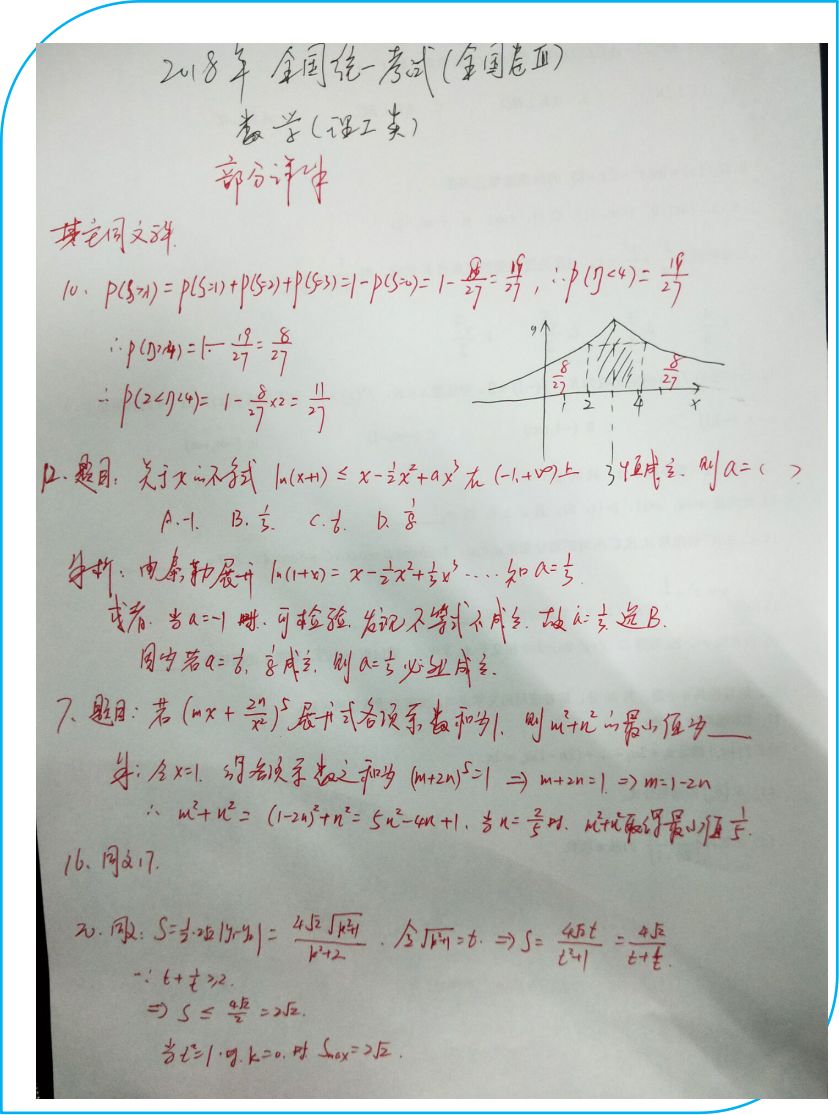 2018年 全国统一考试(全国卷Ⅲ)
数学(理工类)
部分详解
其它同文科.
10. P(ξ≥1)=P(ξ=1)+P(ξ=2)+P(ξ=3)=1-P(ξ=0)=1-8/27=19/27, ∴P(η<4)=19/27
∴P(η>4)=1-19/27=8/27
∴P(2<η<4)=1-8/27×2=11/27
y 8/27 8/27 1 2 3 4 x
12. 题目: 关于x的不等式 ln(x+1)≤x-½x²+ax³在(-1,+∞)上恒成立. 则a=( )
A.-1. B.⅓. C.⅙. D.⅛
解析: 由泰勒展开 ln(1+x)=x-½x²+⅓x³····知a=⅓.
或者: 当a=-1时. 可检验. 发现不等式不成立. 故a=⅓. 选B.
同步若a=⅙, ⅛成立. 则a=⅓必然成立.
7. 题目: 若(mx+2n/x²)⁵展开式各项系数和为1. 则m²+n²的最小值为____
解: 令x=1. 得各项系数之和为(m+2n)⁵=1 ⇒ m+2n=1. ⇒ m=1-2n
∴ m²+n²=(1-2n)²+n²=5n²-4n+1. 当n=2/5时. m²+n²取得最小值1/5.
16. 同文17.
20. 同文: S=½·2√2|y₁-y₂|=4√2√(k²+1)/(k²+2). 令√(k²+1)=t. ⇒S=4√2t/(t²+1)=4√2/(t+1/t).
∵ t+1/t≥2.
⇒ S≤4√2/2=2√2.
当t²=1.即.k=0.时 Smax=2√2.